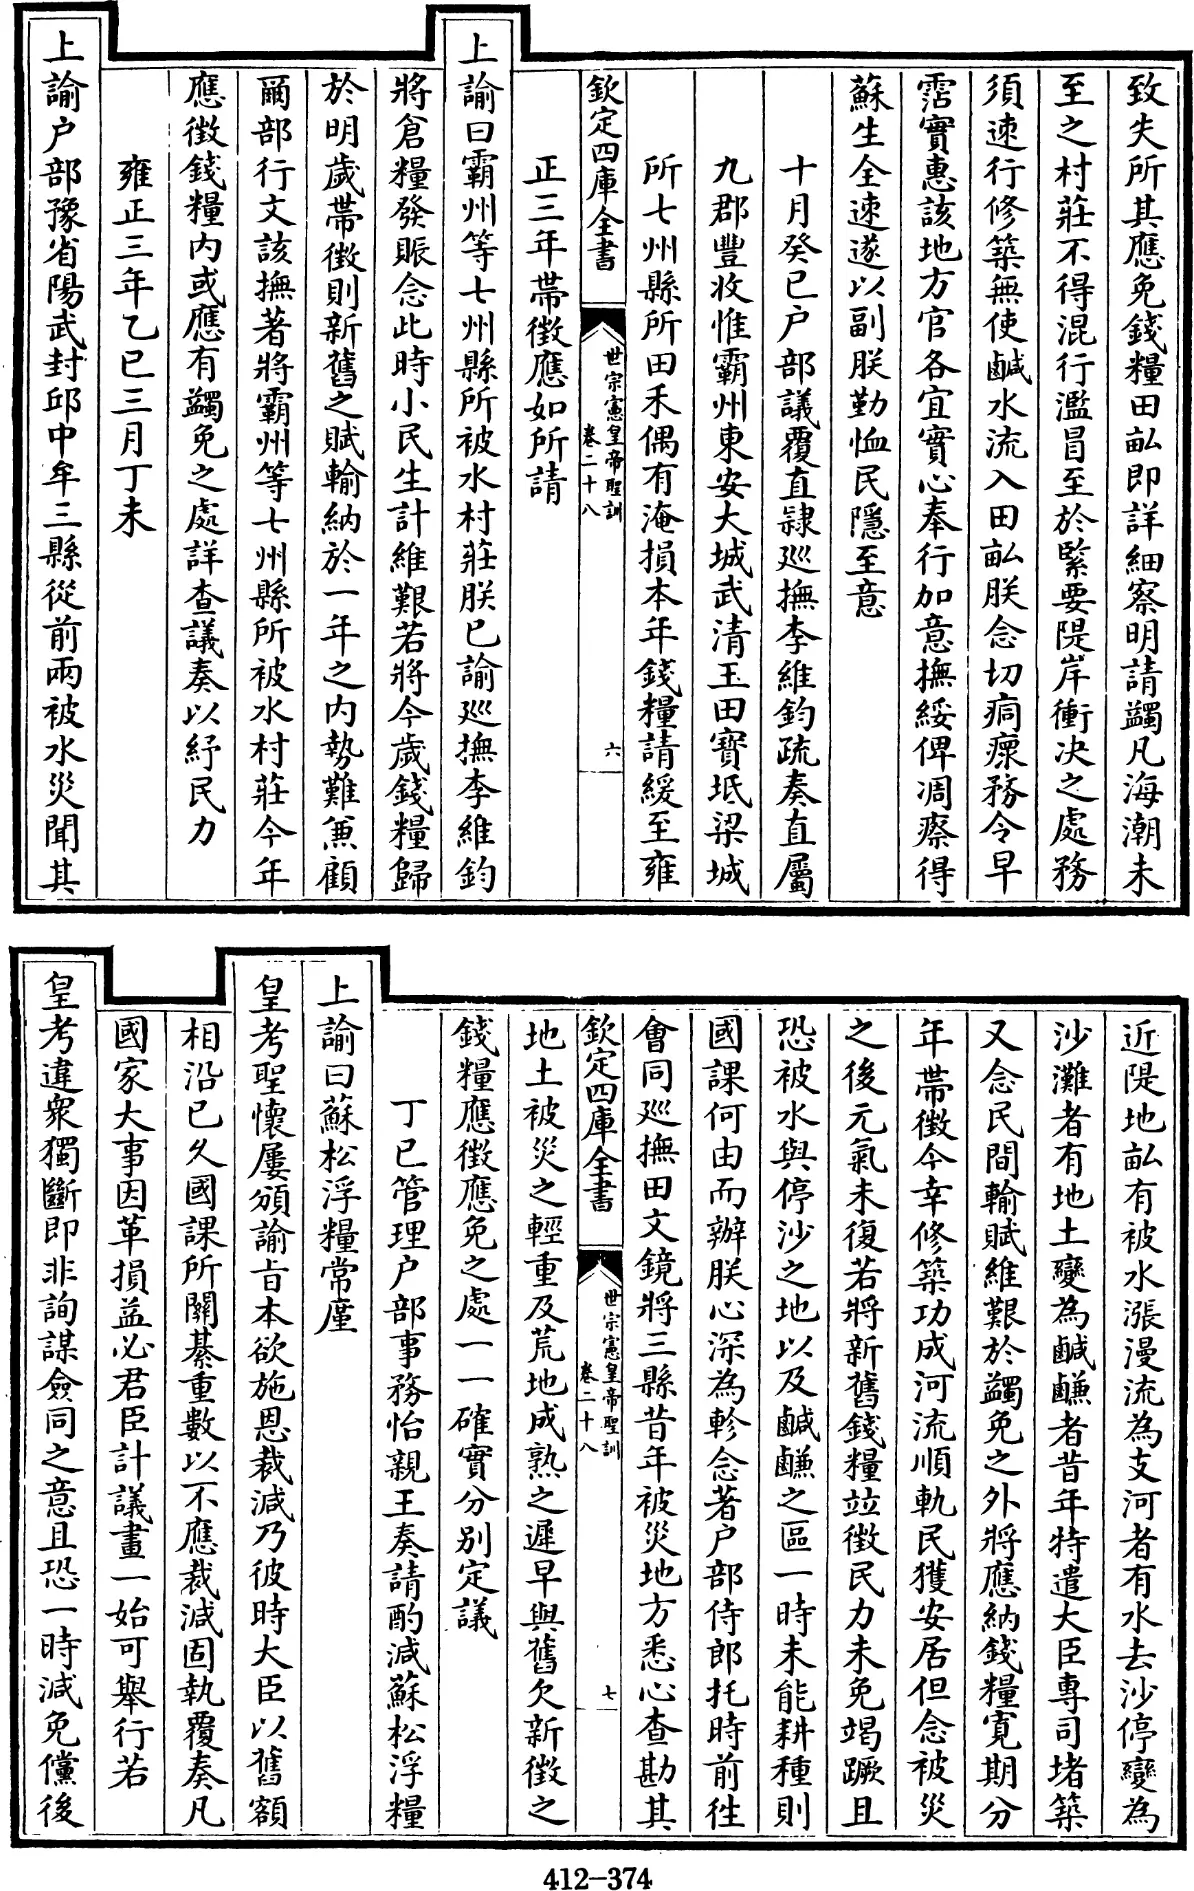 致失所其應免錢糧田畆即詳細察明請蠲凡海潮未
至之村莊不得混行濫冒至於緊要隄岸衝决之處務
須速行修築無使鹹水流入田畆朕念切痌瘝務令早
霑實惠該地方官各宜實心奉行加意撫綏俾凋瘵得
蘇生全速遂以副朕勤恤民隱至意
十月癸巳户部議覆直隸廵撫李維鈞疏奏直屬
九郡豐收惟霸州東安大城武清玉田寳坻梁城
所七州縣所田禾偶有淹損本年錢糧請緩至雍
欽定四庫全書
世宗憲皇帝聖訓
卷二十八
六
正三年帶徵應如所請
上諭曰霸州等七州縣所被水村莊朕已諭廵撫李維鈞
將倉糧發賑念此時小民生計維艱若將今歲錢糧歸
於明歲帶徵則新舊之賦輸納於一年之内勢難兼顧
爾部行文該撫著將霸州等七州縣所被水村莊今年
應徵錢糧内或應有蠲免之處詳查議奏以紓民力
雍正三年乙巳三月丁未
上諭户部豫省陽武封邱中牟三縣從前兩被水災聞其
近隄地畆有被水漲漫流為支河者有水去沙停變為
沙灘者有地土變為鹹鹻者昔年特遣大臣專司堵築
又念民間輸賦維艱於蠲免之外將應納錢糧寛期分
年帶徵今幸修築功成河流順軌民獲安居但念被災
之後元氣未復若將新舊錢糧竝徵民力未免竭蹶且
恐被水與停沙之地以及鹹鹻之區一時未能耕種則
國課何由而辦朕心深為軫念著户部侍郎托時前徃
會同廵撫田文鏡將三縣昔年被災地方悉心查勘其
欽定四庫全書
世宗憲皇帝聖訓
卷二十八
七
地土被災之輕重及荒地成熟之遲早與舊欠新徵之
錢糧應徵應免之處一一確實分别定議
丁巳管理户部事務怡親王奏請酌減蘇松浮糧
上諭曰蘇松浮糧常廑
皇考聖懷屢頒諭㫖本欲施恩裁減乃彼時大臣以舊額
相沿已久國課所關綦重數以不應裁減固執覆奏凡
國家大事因革損益必君臣計議畫一始可舉行若
皇考違衆獨斷即非詢謀僉同之意且恐一時減免儻後
412-374